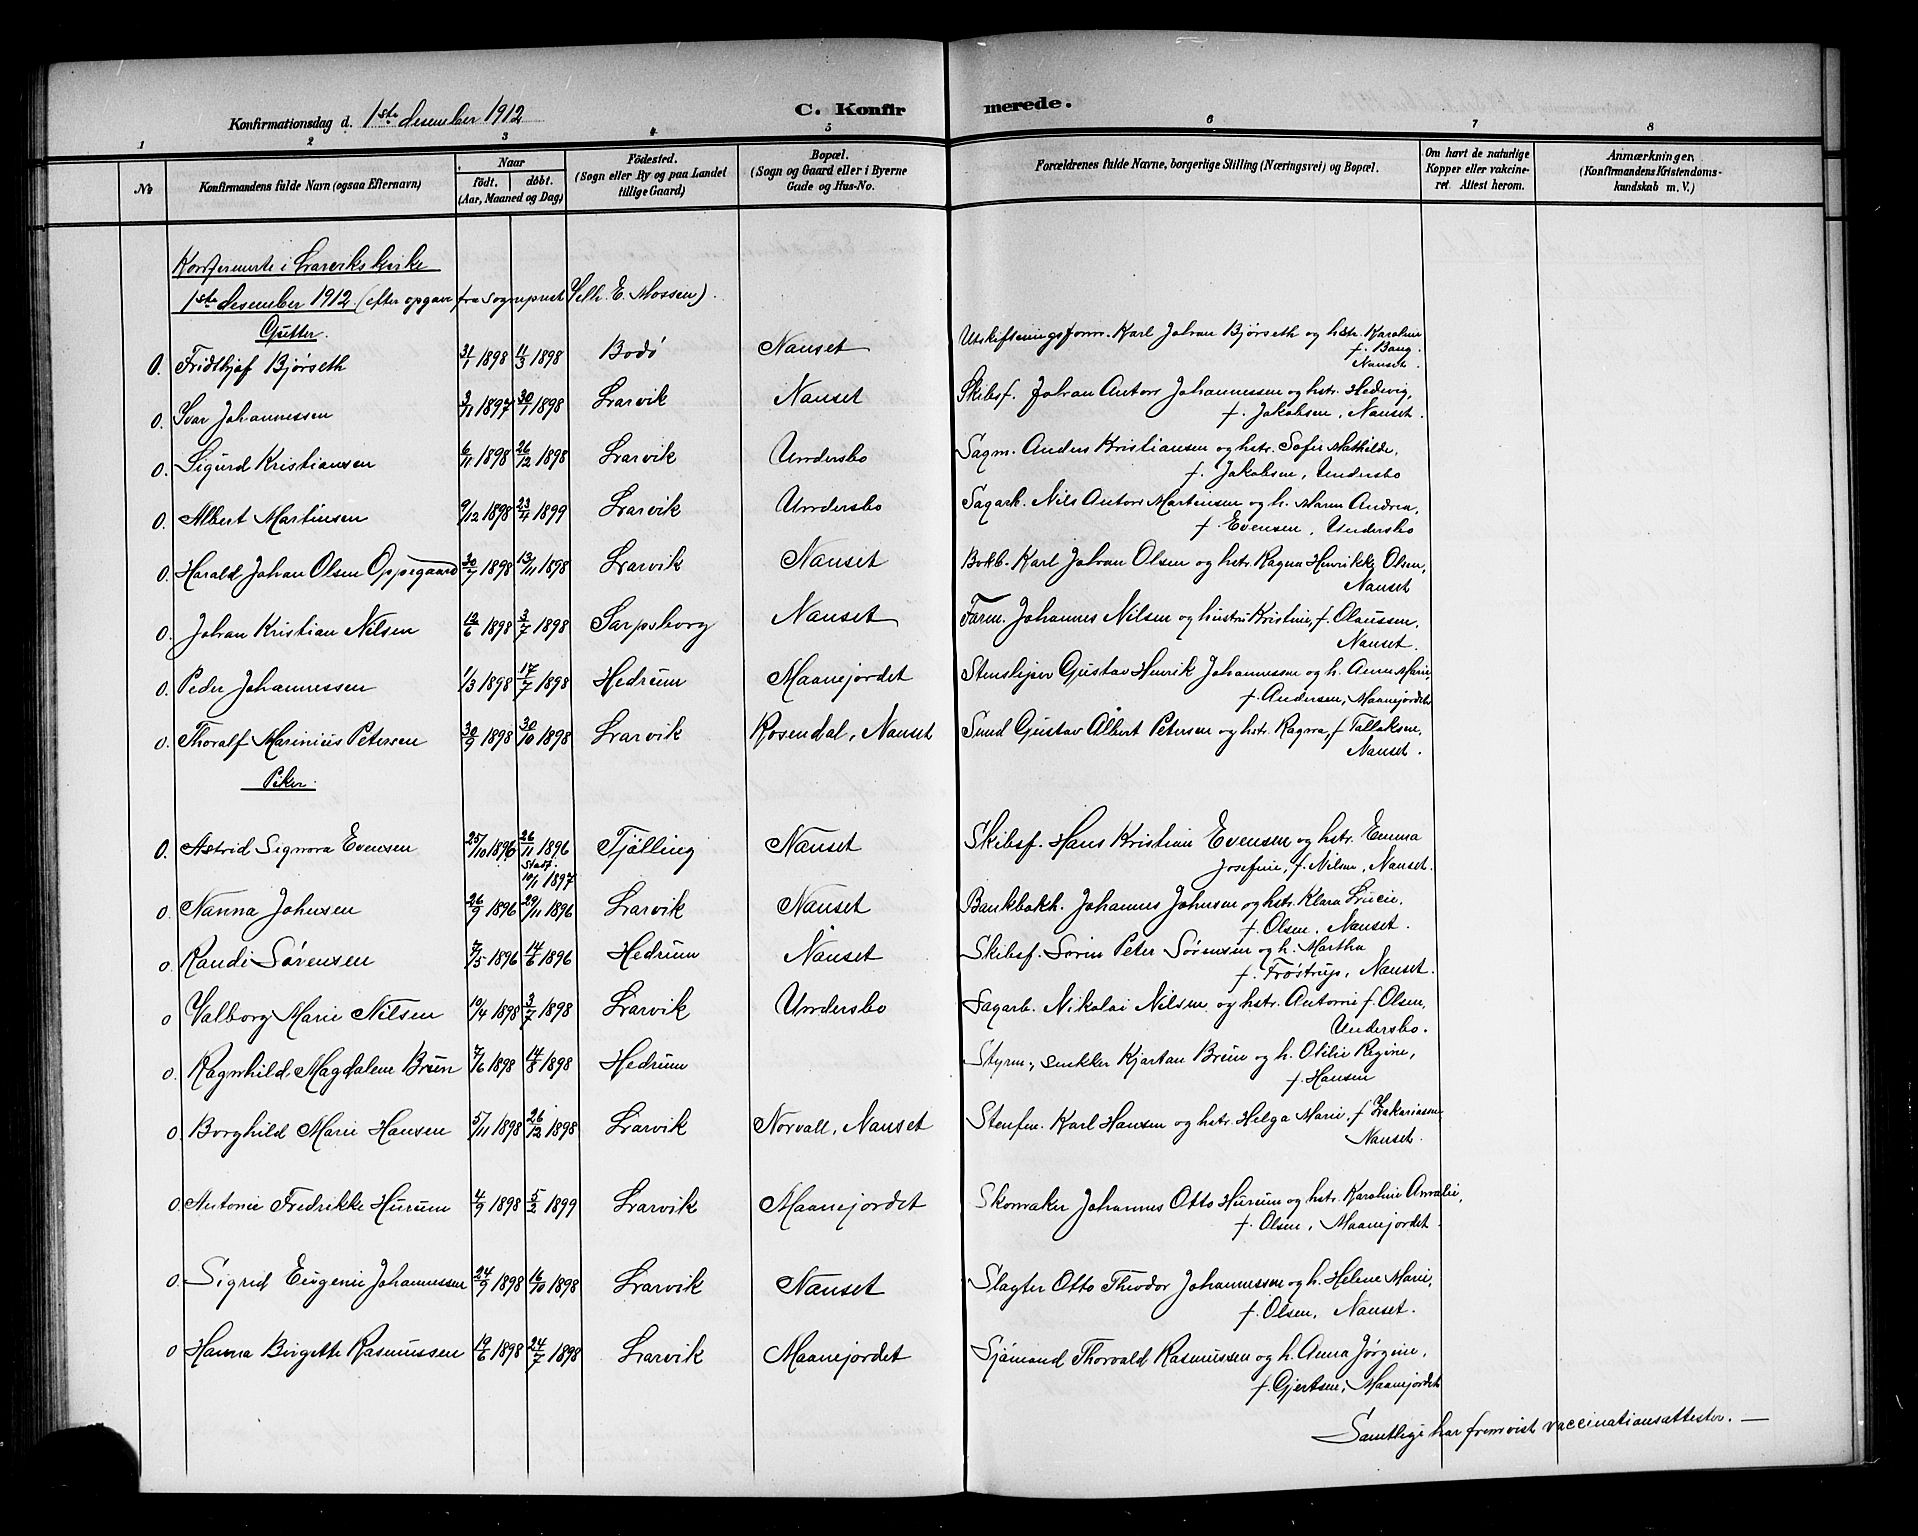 C. Konfirmerede.
Konfirmationsdag d. 1ste desember 1912
1 2 3 4 5 6 7 8
No
Konfirmandens fulde Navn (ogsaa Efternavn)
Naar
födt. döbt.
(Aar, Maaned og Dag)
Födested.
(Sogn eller By og paa Landet
tillige Gaard)
Bopæl.
(Sogn og Gaard eller i Byerne
Gade og Hus-No.
Forældrenes fulde Navne, borgerlige Stilling (Næringsvei) og Bopæl.
Om havt de naturlige
Kopper eller vakcine-
ret. Attest herom.
Anmærkninger
(Konfirmandens Kristendoms-
kundskab m. V.)
Konfirmerte i Larviks kirke
1ste desember 1912 (efter opgave fra sogneprest Vilh. E. Mossen).
Gutter.
0. Fridthjof Bjørseth 31/1 1898 11/3 1898 Bodø Nanset Utskiftningsform. Karl Johan Bjørseth og hstr. Karoline
f. Bang.
Nanset.
0. Ivar Johannessen 3/11 1897 30/1 1898 Larvik Nanset Skibsf. Johan Anton Johannessen og hstr. Hedevig,
f. Jakobsen, Nanset.
0. Sigurd Kristiansen 6/11 1898 26/12 1898 Larvik Undersbo Sagm. Anders Kristiansen og hstr. Sofie Mathilde,
f. Jakobsen, Undersbo
0. Albert Martinsen 9/12 1898 23/4 1899 Larvik Undersbo Sagarb. Nils Anton Martinsen og h. Maren Andrea,
f. Evensen, Undersbo
0. Harald Johan Olsen Oppegaard 30/7 1898 13/11 1898 Larvik Nanset Bokb. Karl Johan Olsen og hstr. Ragna Henrikke Olsen,
Nanset
0. Johan Kristian Nilsen 12/6 1898 3/7 1898 Sarpsborg Nanset Farm. Johannes Nilsen og hustru Kristine, f. Olaussen,
Nanset.
0. Peder Johannessen 1/3 1898 17/7 1898 Hedrum Maanejordet Stensliper Gustav Henrik Johannessen og h. Anne Marie
f. Andersen, Maanejordet
0. Thoralf Marinius Petersen 30/9 1898 30/10 1898 Larvik Rosendal, Nanset Smed Gustav Albert Petersen og hstr. Ragna, f. Tallaksen,
Nanset.
Piker.
0. Astrid Signora Evensen 25/10 1896 26/11 1896 Tjølling Nanset Skibsf. Hans Kristian Evensen og hstr. Emma
Stadf.
10/1 1897
Josefine, f. Nilsen, Nanset.
0. Nanna Johnsen 26/9 1896 29/11 1896 Larvik Nanset Bankbokh. Johannes Johnsen og hstr. Klara Lucie,
f. Olsen, Nanset.
0 Randi Sørensen 7/5 1896 14/6 1896 Hedrum Nanset Skibsf. Sören Peter Sørensen og h. Martha
f. Frøstrup, Nanset.
0 Valborg Marie Nilsen 10/4 1898 3/7 1898 Larvik Undersbo Sagarb. Nikolai Nilsen og hstr. Antonie f. Olsen,
Undersbo.
0. Ragnhild Magdalene Brun 7/6 1898 14/8 1898 Hedrum Styrm., snekker Kjartan Brun og h. Otilie Regine,
f. Hansen
0. Borghild Marie Hansen 5/11 1898 26/12 1898 Larvik Norvall, Nanset Stenfm. Karl Hansen og hstr. Helga Marie, f. Zakariassen
Nanset.
0. Antonie Fredrikke Hurum 4/9 1898 5/2 1899 Larvik Maanejordet Skomaker Johannes Otto Hurum og hstr. Karoline Amalie,
f. Olsen, Maanejordet.
0. Sigrid Eugenie Johannessen 24/9 1898 16/10 1898 Larvik Nanset Slagter Otto Theodor Johannessen og h. Helene Marie,
f. Olsen, Nanset.
0 Hanna Birgette Rasmussen 19/6 1898 24/7 1898 Larvik Maanejordet Sjömand Thorvald Rasmussen og h. Anna Jørgine,
f. Gjertsen, Maanejordet
Samtlige har fremvist vaccinationsattester. —